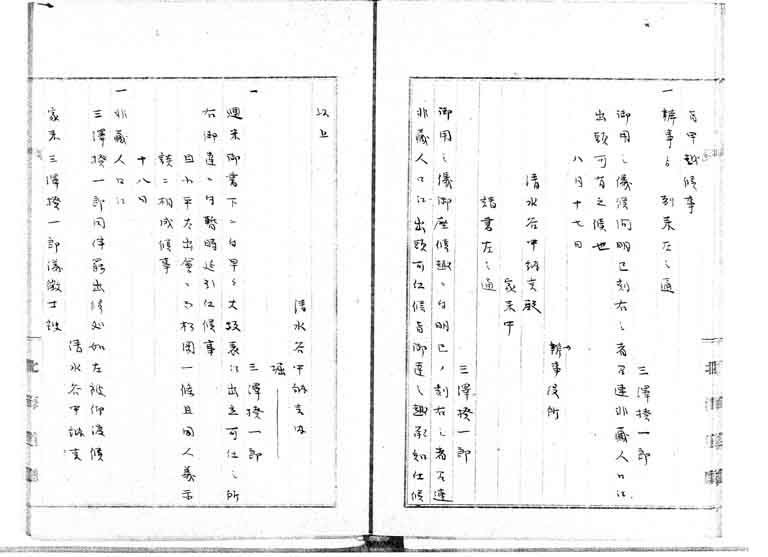 百甲越候事
一 辨事ゟ到来左之通
三澤揆一郎
御用之儀候間明巳刻右之者召連非藏人口江
出頭可有之候也
八月十七日
辨事役所
清水谷中納言殿
家来中
請書左之通
三澤揆一郎
御用之儀御座候趣ニ而明巳ノ刻右之者召連
非藏人口江出頭可仕候旨御達之趣承知仕候
以上
清水谷中納言内
堀
一
三澤揆一郎
過来御書下ニ而早々大坂表江出立可仕之所
右御達ニ而暫時延引仕候事
且小平太出會
談ニ相成候事
十八日
一 非藏人口江
三澤揆一郎同伴罷出候処如左被仰渡候
清水谷中納言
家来三澤揆一郎儀徴士被